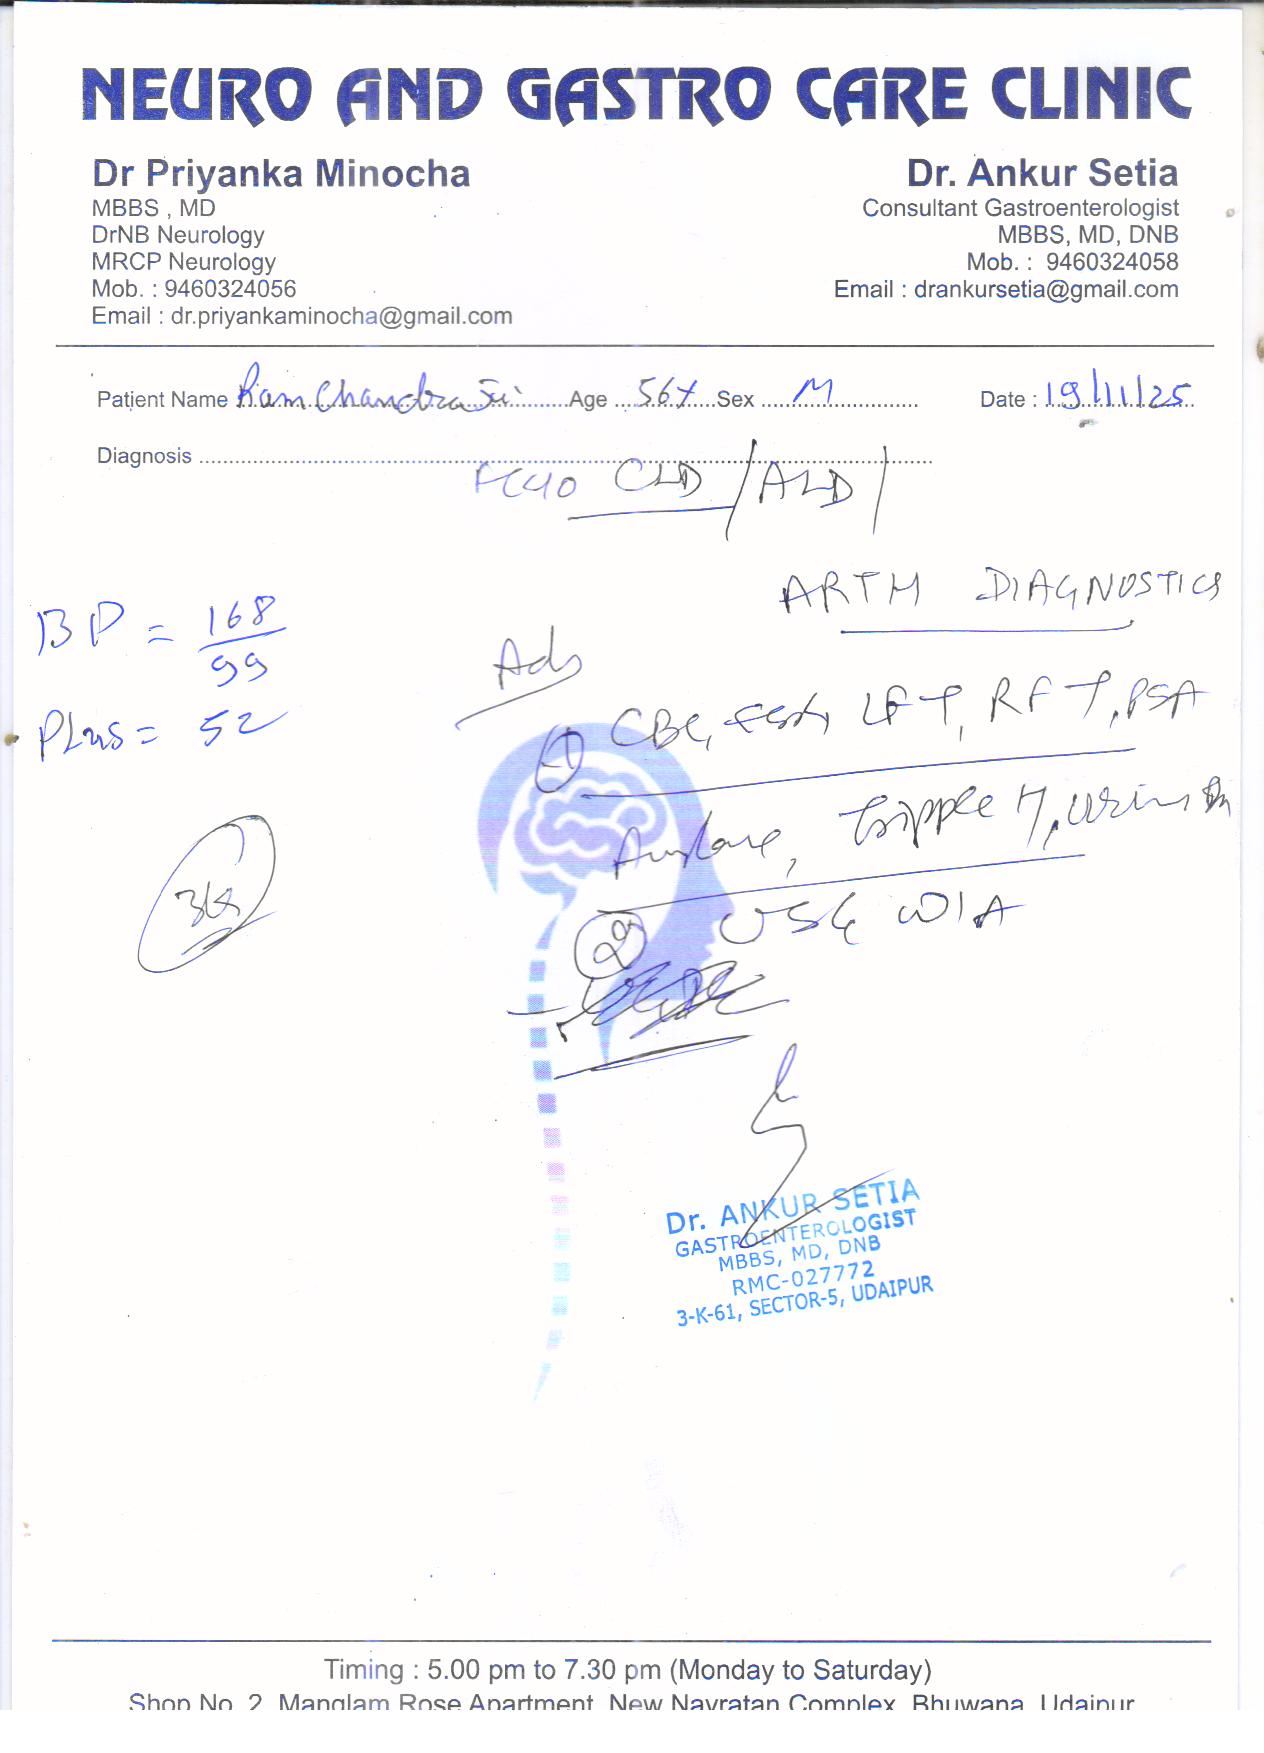 NEURO AND GASTRO CARE CLINIC
Dr Priyanka Minocha
MBBS , MD
DrNB Neurology
MRCP Neurology
Mob. : 9460324056
Email : dr.priyankaminocha@gmail.com
Dr. Ankur Setia
Consultant Gastroenterologist
MBBS, MD, DNB
Mob. : 9460324058
Email : drankursetia@gmail.com
Patient Name Ram Chandra Age 56 Sex M Date : 19/11/25
Diagnosis
CLD / ALD /
ARTH DIAGNOSTICS
BP = 168/99
Plus = 52
Adv
① CBC, LFT, RFT, PSA
Amylase, Tripple H, Urine
② USG W/A
Dr. ANKUR SETIA
GASTROENTEROLOGIST
MBBS, MD, DNB
RMC-027772
3-K-61, SECTOR-5, UDAIPUR
Timing : 5.00 pm to 7.30 pm (Monday to Saturday)
Shop No. 2, Manglam Rose Apartment, New Navratan Complex, Bhuwana, Udaipur